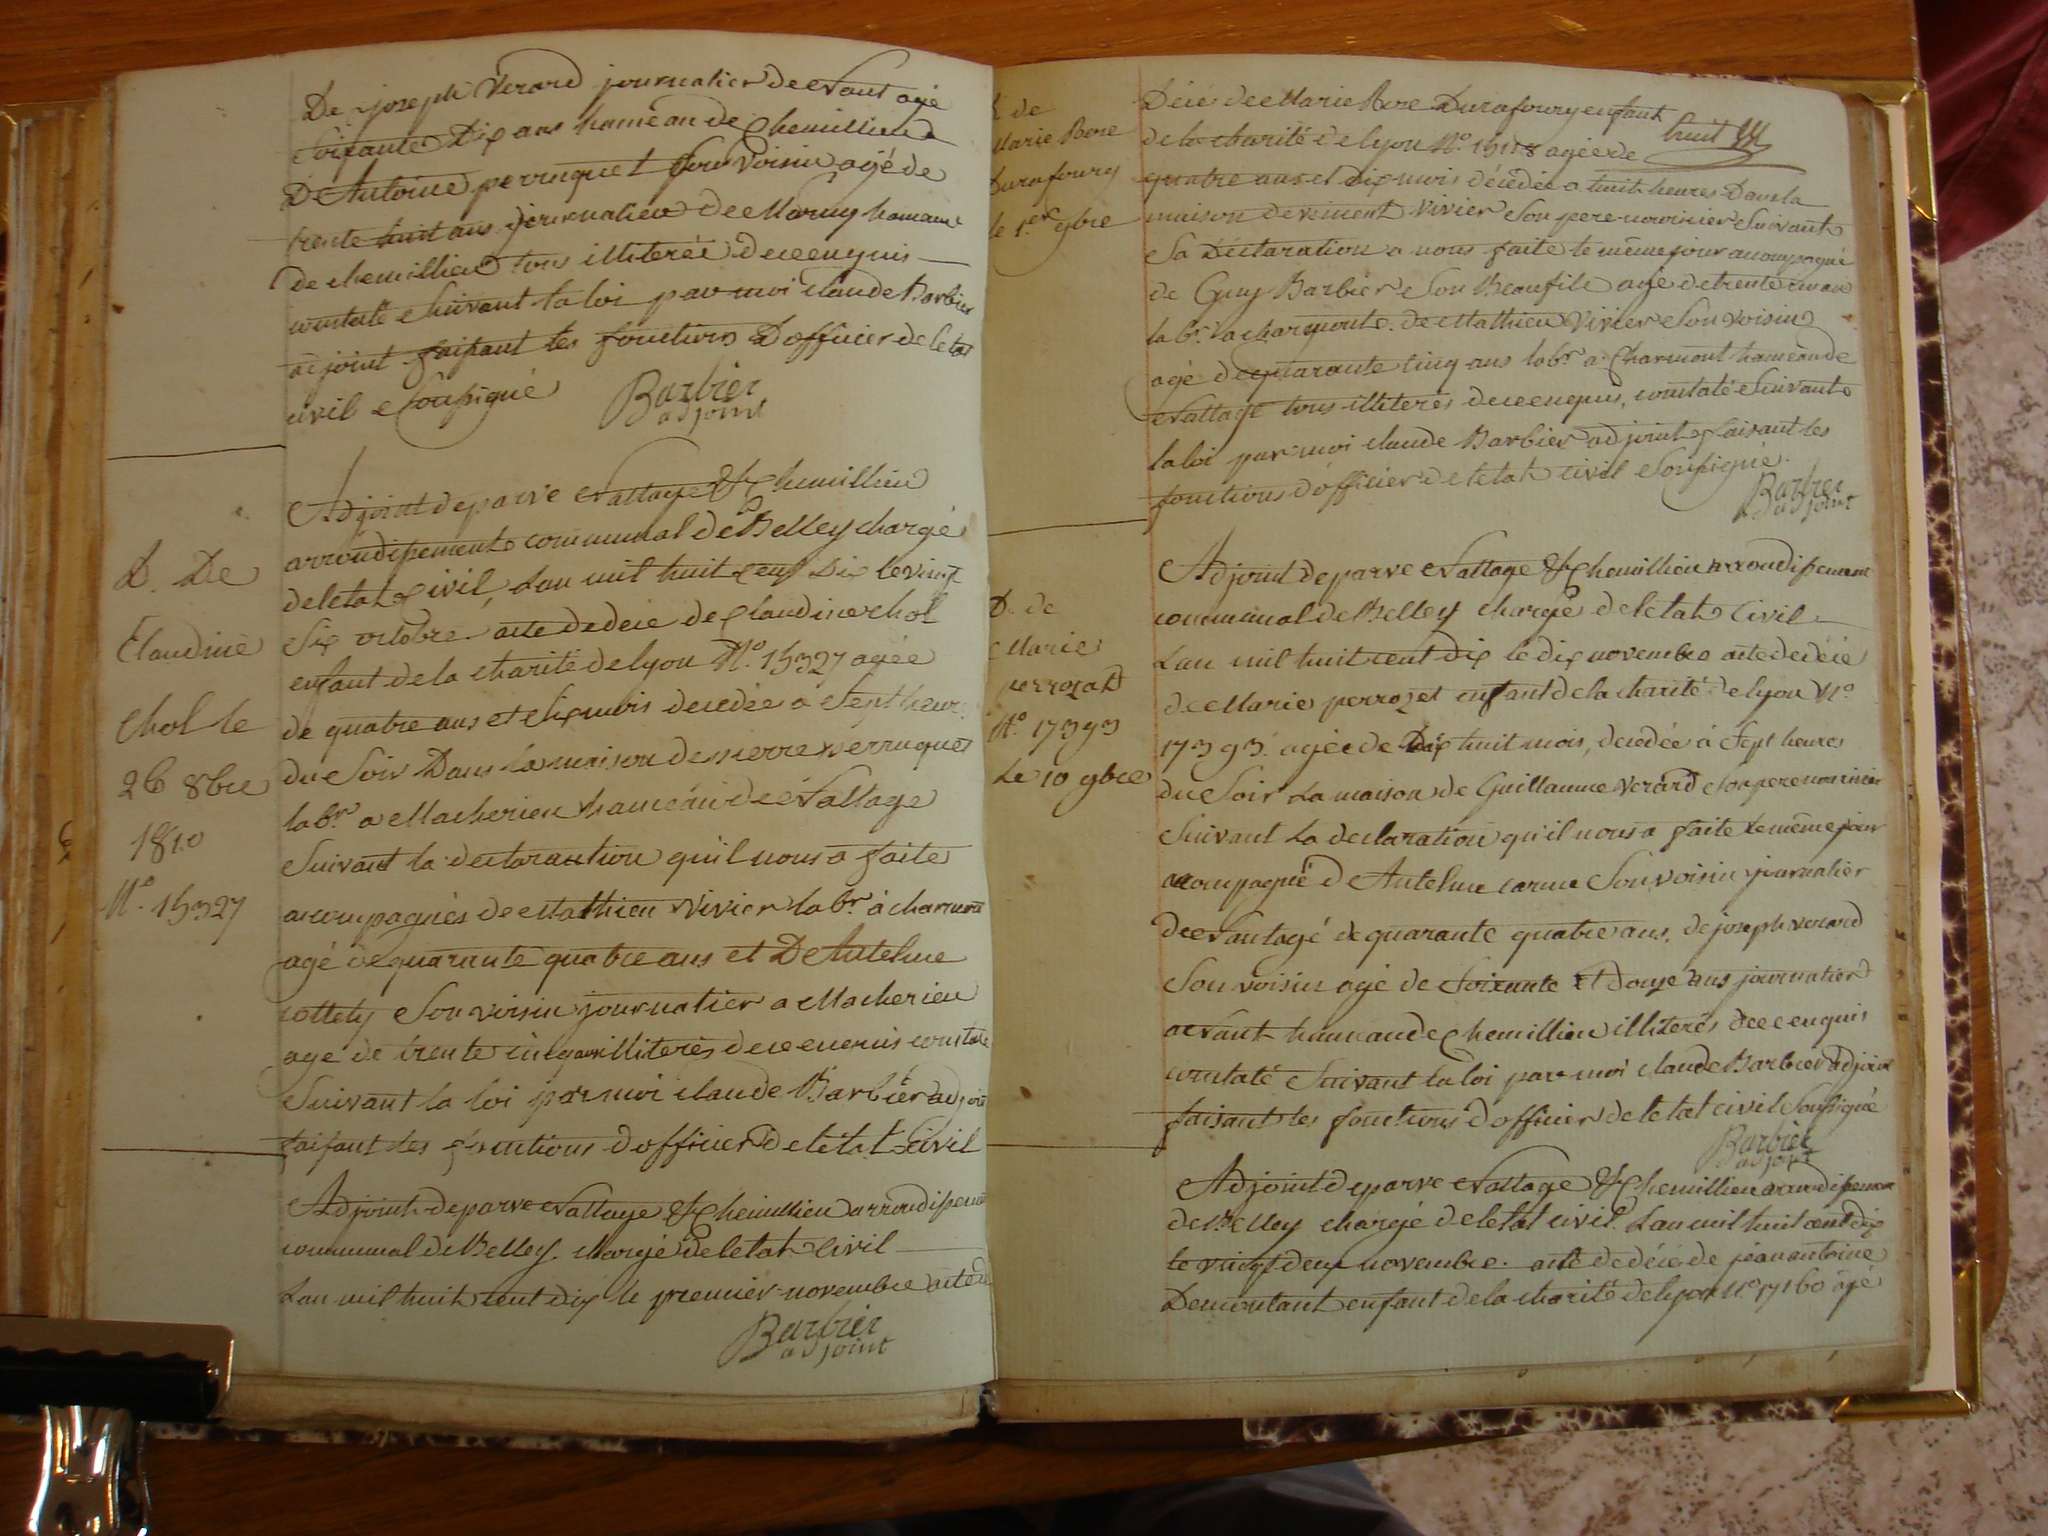 De joseph Verard journalier de evant agé
soixante Dix ans hameau de Chemillieu
D Antoine perruquet son voisin agé de
trente huit ans journalier de Marny hamau
de chemillieu tous illiterés de ce enquis
constaté suivant la loi par moi claude Barbier
adjoint faisant les fonctions D officier de letat
civil soussigné
Barbier
adjoint
D. De
Claudine
Chol le
26 8bre
1810
N.o 15327
Adjoint de parve Nattage & Chemillieu
arrondissement communal de Belley chargé
de letat Civil, Lan mil huit cent Dix le vingt
six octobre acte de décé de Claudine chol
enfant de la charité de lyon N.o 15327 agée
de quatre ans et six mois decedée a sept heur
du soir Dans la maison de pierre perruquet
labr. a Macherieu hameau de Nattage
suivant la declaraution qu'il nous a faite
accompagnés de Mathieu Vivier labr. à charmont
agé de quarante quatre ans et D Antelme
cottety son voisin journalier a Macherieu
agé de trente cinq ans illiterés de ce enquis constaté
suivant la loi par moi claude Barbier adjoint
faisant les fonctions d officier de létat civil
Adjoint de parve Nattage & Chemillieu arrondissement
communal de Belley chargé de letat Civil
Lan mil huit cent dix le premier novembre acte de
Barbier
adjoint
D. de
Marie Rose
Durafoury
le 1.er 9bre
Décé de Marie Rose Durafoury enfant
de la charité de lyon N.o 15188 agée de huit
quatre ans et dix mois décédée a huit heures Dans la
maison de vincent vivier son pere nouricier suivant
sa Déclaration a nous faite le même jour accompagné
de Guy Barbier son Beaufils agé de trente cinq ans
labr. a charmont. de Mathieu Vivier son voisin
agé de quarante cinq ans labr. a Charmont hameau de
Nattage tous illiterés de ce enquis, constaté suivant
la loi par moi claude Barbier adjoint faisant les
fonctions d'officier de letat civil soussigné
Barbier
adjoint
D. de
Marie
perrozat
N.o 17393
Le 10 9bre
Adjoint de parve Nattage & Chemillieu arrondissement
communal de Belley chargé de letat Civil
Lan mil huit cent dix le dix novembre acte de décé
de Marie perrozet enfant de la charité de lyon N.o
17393 agée de Dix huit mois, decedée à sept heures
du soir La maison de Guillaume Verard son pere nouricier
suivant La declaration qu'il nous a faite le même jour
accompagné d Antelme carme son voisin journalier
de evant agé de quarante quatre ans, de joseph verard
son voisin agé de soixante et douze ans journalier
a evant hamau de Chemillieu illiterés de ce enquis
constaté suivant la loi par moi claude Barbier adjoint
faisant les fonctions d officier de letat civil soussigné
Barbier
adjoint
Adjoint de parve Nattage & Chemillieu arrondissement
de Belley chargé de letat civil. Lan mil huit cent dix
le vingt deux novembre. acte de décé de jean antoine
Demontant enfant de la charité de lyon N.o 17160 agé